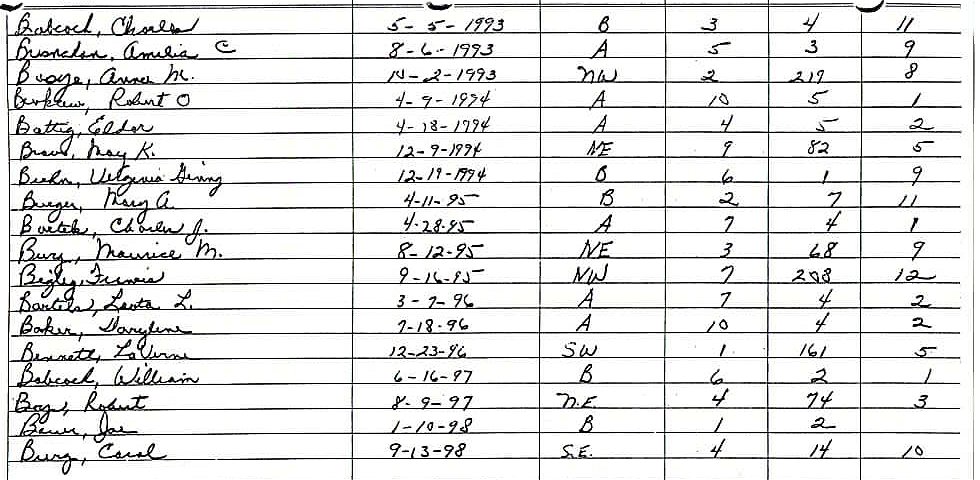 Babcock, Charles 5-5-1993 B 3 4 11
Amelia C 8-6-1993 A 5 3 9
Booze, Anna M. 2-1993 NW 2 217 8
Robert O 4-9-1994 A 10 5 1
Battig, Eldor 4-18-1994 A 4 5 2
May K. 12-9-1994 NE 9 82 5
Virginia Ginny 12-19-1994 B 6 1 9
Burger, Mary A. 4-11-95 B 2 7 11
Bartek, Charles J. 4-28-95 A 7 4 1
Burg, Maurice M. 8-12-95 NE 3 68 9
Bigley, Francis 9-16-95 NW 7 208 12
Bartels, Leota L. 3-7-96 A 7 4 2
Baker, Darylene 7-18-96 A 10 4 2
Bennett, LaVerne 12-23-96 SW 1 161 5
Babcock, William 6-16-97 B 6 2 1
Robert 8-9-97 N.E. 4 74 3
Joe 1-10-98 B 1 2
Burg, Carol 9-13-98 S.E. 4 14 10